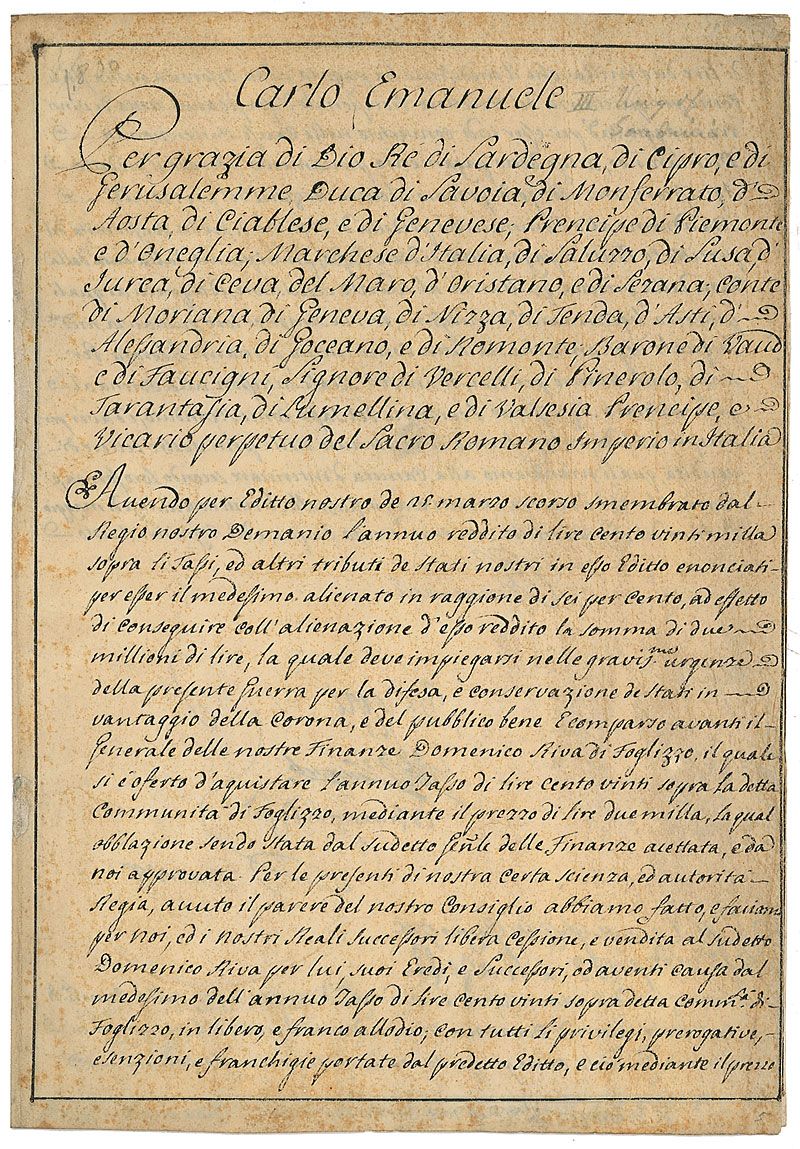 Carlo Emanuele III
Per grazia di Dio Re di Sardegna, di Cipro, e di
Gerusalemme, Duca di Savoia, di Monferrato, d'
Aosta, di Ciablese, e di Genevese; Prencipe di Piemonte
e d'Oneglia; Marchese d'Italia, di Saluzzo, di Susa, d'
Jurea, di Ceva, del Maro, d'Oristano, e di Sezana; Conte
di Moriana, di Geneva, di Nizza, di Tenda, d'Asti, d'
Alessandria, di Goceano, e di Romonte; Barone di Vaud
e di Faucigni, Signore di Vercelli, di Pinerolo, di
Tarantasia, di Lumellina, e di Valsesia Prencipe, e
Vicario perpetuo del Sacro Romano Imperio in Italia
Avendo per Editto nostro de marzo scorso smembrato dal
Regio nostro Demanio l'annuo reddito di lire cento vinti milla
sopra li Tassi, ed altri tributi de Stati nostri in esso Editto enonciati
per esser il medesimo alienato in raggione di sei per cento, ad effetto
di conseguire coll'alienazione d'esso reddito la somma di due
millioni di lire, la quale deve impiegarsi nelle gravis.me urgenze
della presente Guerra per la difesa, e conservazione de Stati in
vantaggio della Corona, e del pubblico bene E comparso avanti il
Generale delle nostre Finanze Domenico Riva di Foglizzo, il quale
si è oferto d'aquistare l'annuo Tasso di lire cento vinti sopra la detta
Communità di Foglizzo, mediante il prezzo di lire due milla, la qual
obblazione sendo stata dal sudetto Gen.le delle Finanze accettata, e da
noi approvata. Per le presenti di nostra certa scienza, ed autorità
Regia, avuto il parere del nostro Consiglio abbiamo fatto, e faciamo
per noi, ed i nostri Reali Successori libera Cessione, e vendita al sudetto
Domenico Riva per lui, suoi Eredi, e Successori, od aventi causa dal
medesimo dell'annuo Tasso di lire cento vinti sopra detta Comm.tà di
Foglizzo, in libero, e franco allodio; con tutti li privilegi, prerogative,
esenzioni, e franchigie portate dal predetto Editto, e ciò mediante il prezzo